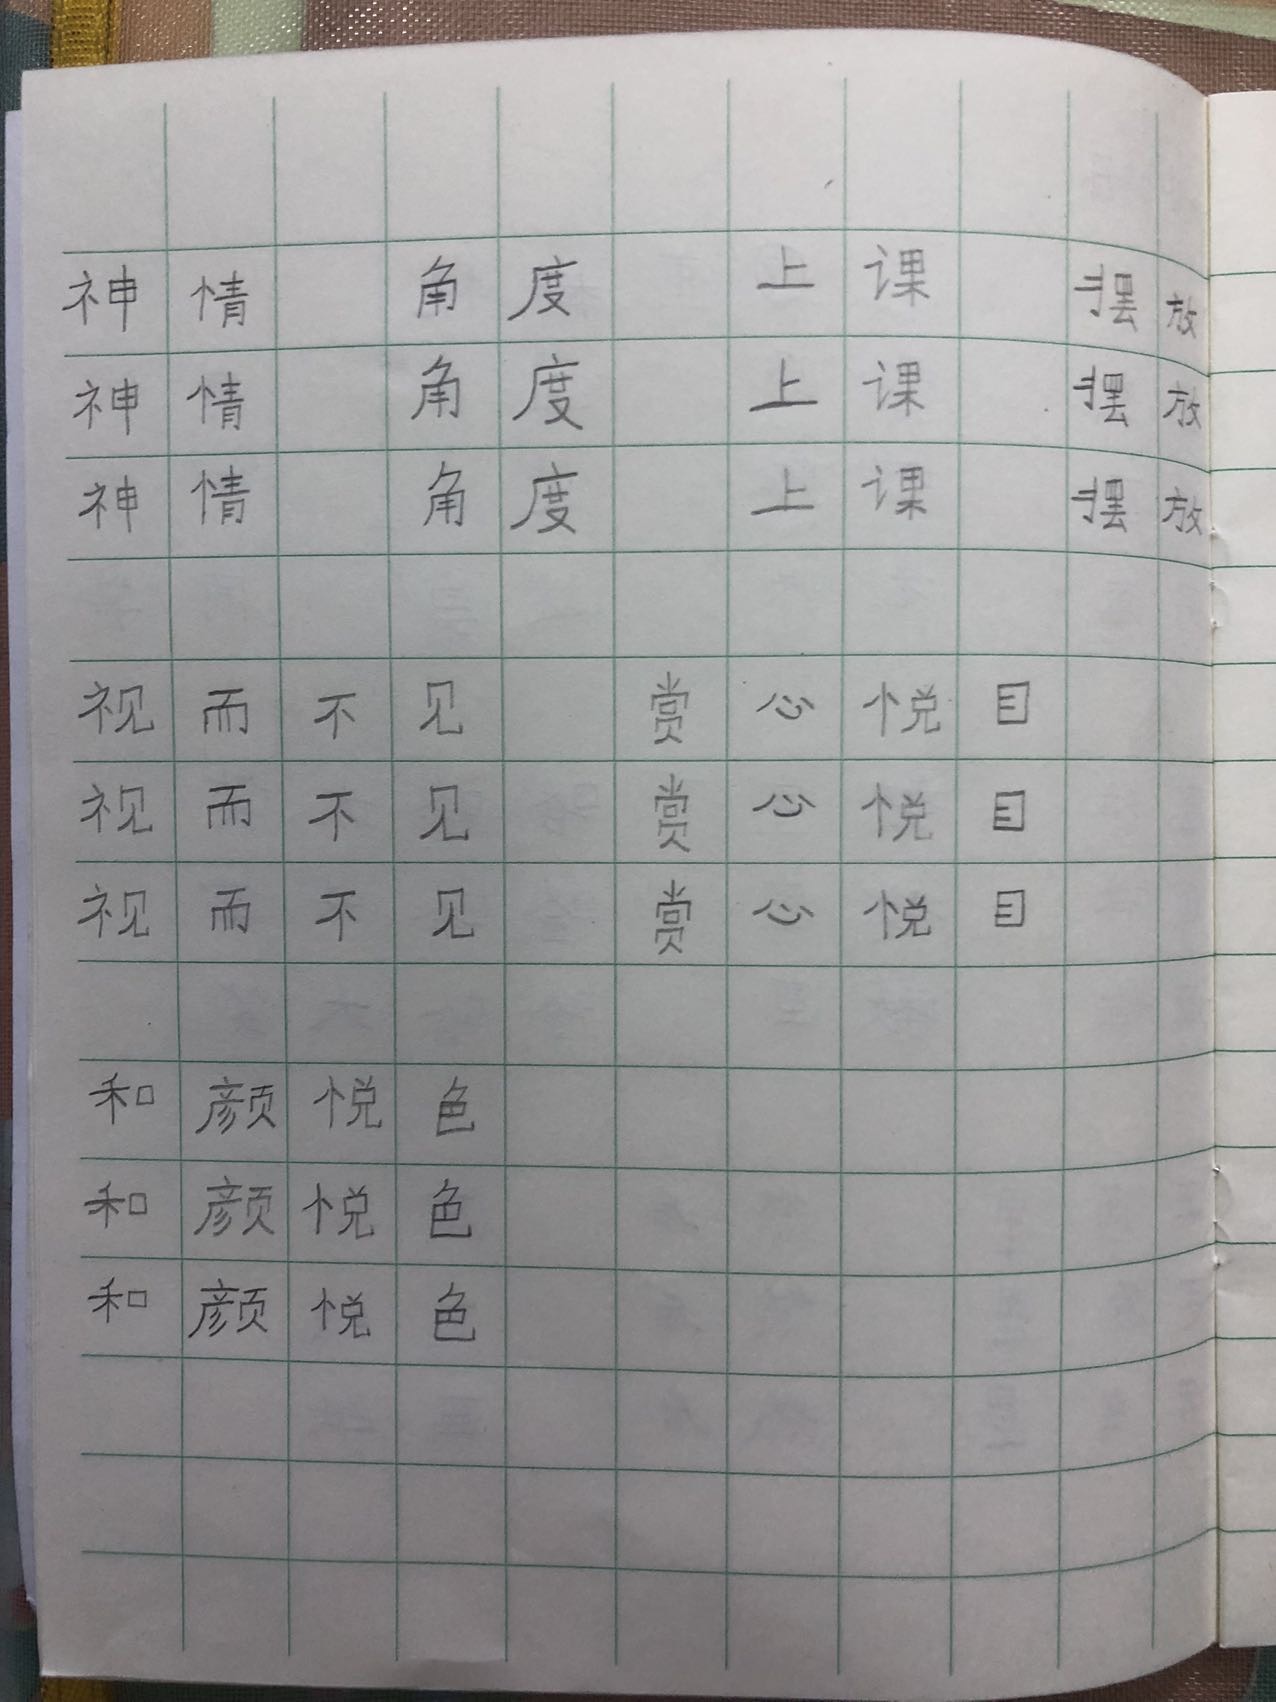 神情 角度 上课 摆放
神情 角度 上课 摆放
神情 角度 上课 摆放
视而不见 赏心悦目
视而不见 赏心悦目
视而不见 赏心悦目
和颜悦色
和颜悦色
和颜悦色